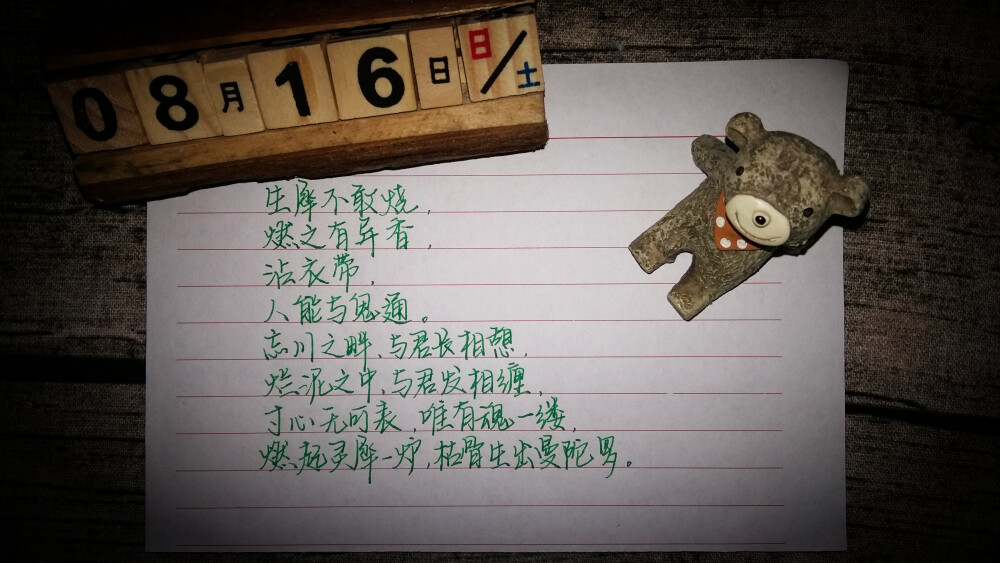 08月16日日/土
生犀不敢烧,
燃之有异香,
沾衣带,
人能与鬼通。
忘川之畔,与君长相憩,
烂泥之中,与君发相缠,
寸心无可表,唯有魂一缕,
燃起灵犀一炉,枯骨生出曼陀罗。